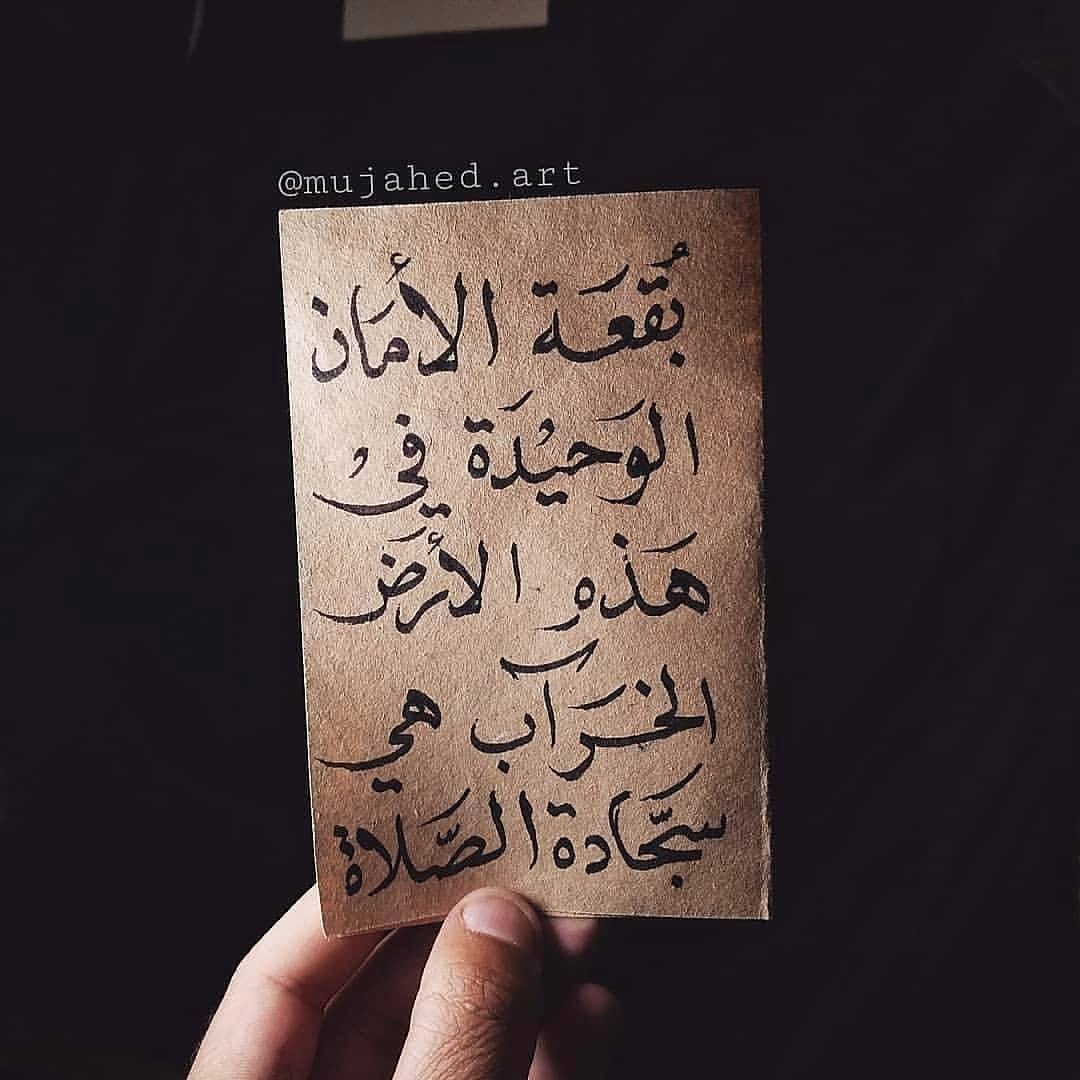 @mujahed.art
بُقعَة الأُمَان
الوَحيْدَة فيْ
هَذه الأرَض
الخَرَآب هي
سَجَّادة الصَّلاة